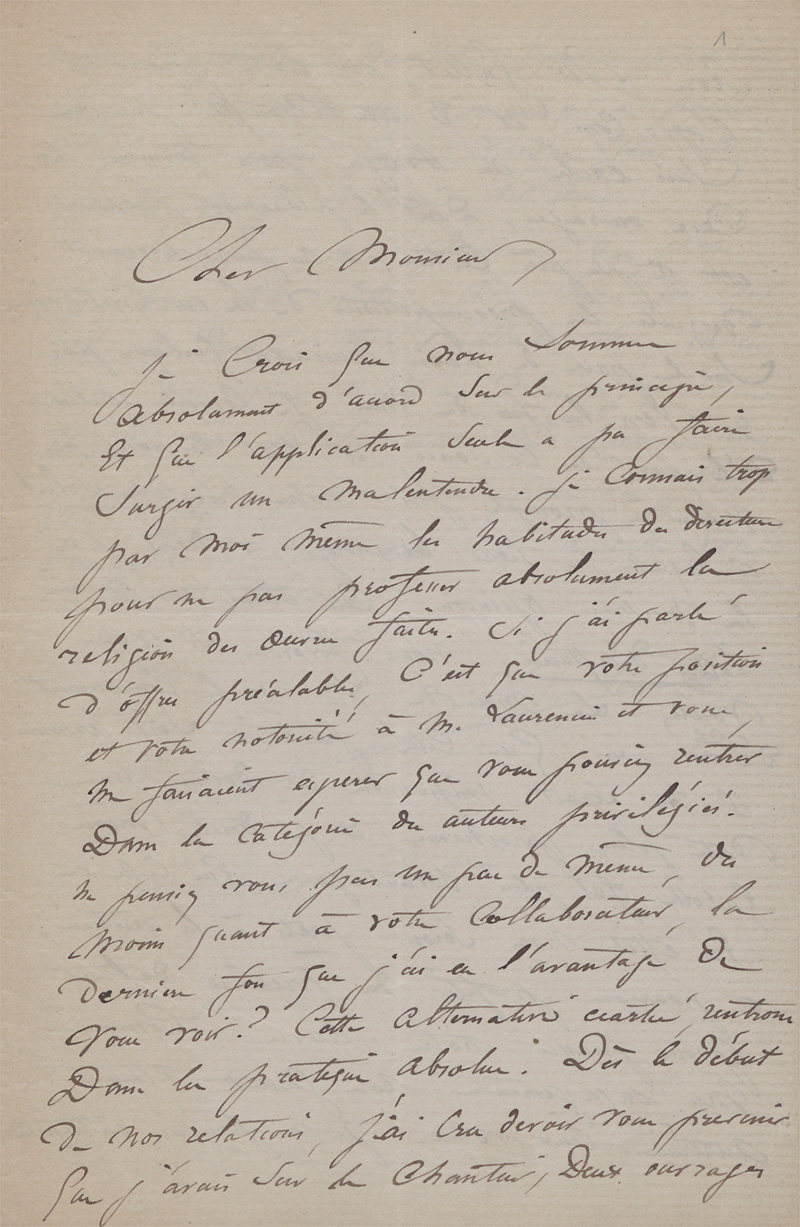 1
Cher Monsieur
Je Crois que nous Sommes
absolument d'accord Sur le principe,
Et que l'application Seule a pu faire
Surgir un malentendu. Je Connais trop
par moi même les habitudes des directeurs
pour ne pas professer absolument la
religion des œuvres faites. Si j'ai parlé
d'offres préalables, C'est que votre position
et votre notoriété à M. Laurencin et vous,
me faisaient esperer que vous pouviez rentrer
Dans la Catégorie des auteurs privilégiés.
ne pensiez vous pas un peu de même, du
moins quant à votre Collaborateur, la
Derniere fois que j'ai eu l'avantage de
Vous voir? Cette alternative ecartée, rentrons
Dans la pratique absolue. Dès le début
de nos relations, j'ai Cru devoir vous prevenir
que j'avais Sur le Chantier, Deux ouvrages